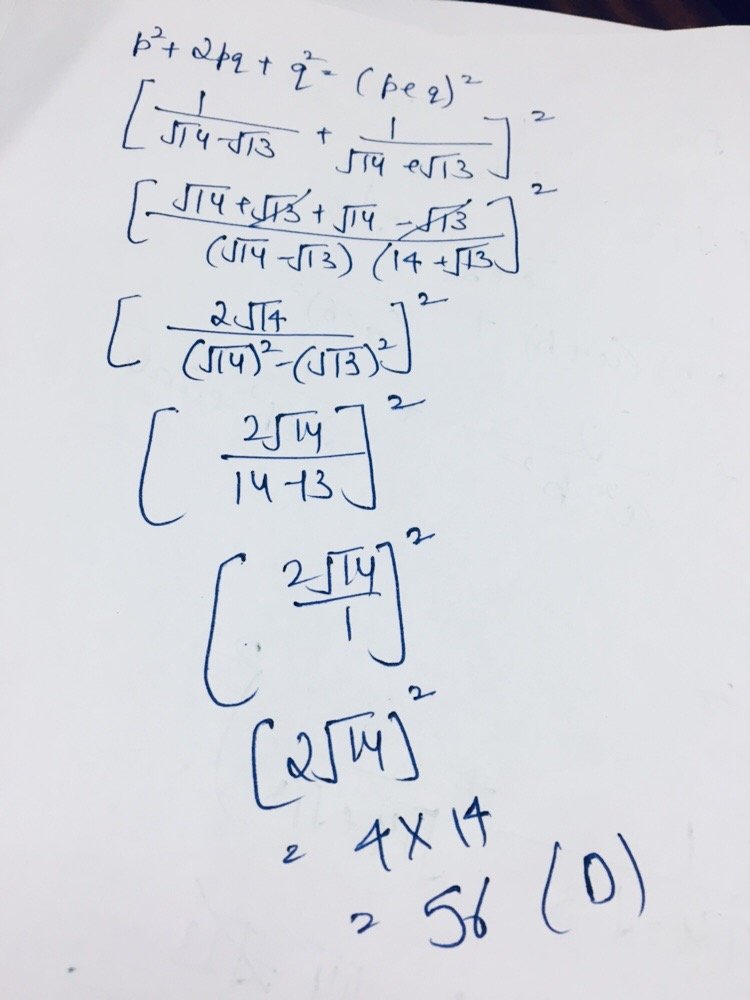 p² + 2pq + q² = (p+q)²
[1/(√14-√13) + 1/(√14+√13)]²
[(√14+√13+√14-√13)/((√14-√13)(14+√13)]²
[2√14/((√14)²-(√13)²)]²
[2√14/(14-13)]²
[2√14/1]²
[2√14]²
= 4×14
= 56 (D)